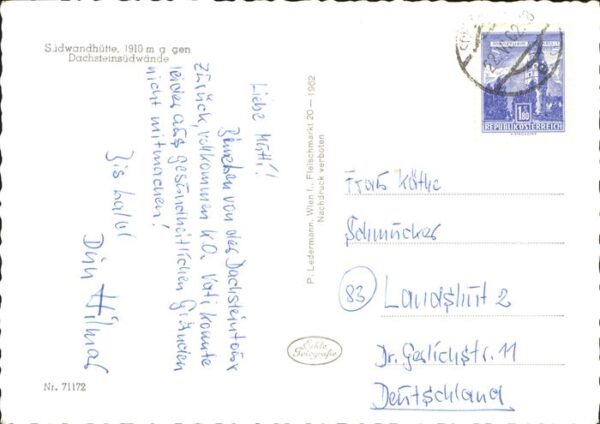 Südwandhütte, 1910 m g gen
Dachsteinsüdwände
Liebe Mutti!
von der Dachsteintour
zurück, vollkommen K.O. Vati konnte
leider aus gesundheitlichen Gründen
nicht mitmachen!
Bis bald!
Dein Hilmar
Nr. 71172
P. Ledermann, Wien I., Fleischmarkt 20 — 1962
Nachdruck verboten
Echte
Fotografie
1.80
REPUBLIK ÖSTERREICH
Frau Käthe
Schmucker
83 Landshut 2
Dr. Gerlichstr. 11
Deutschland